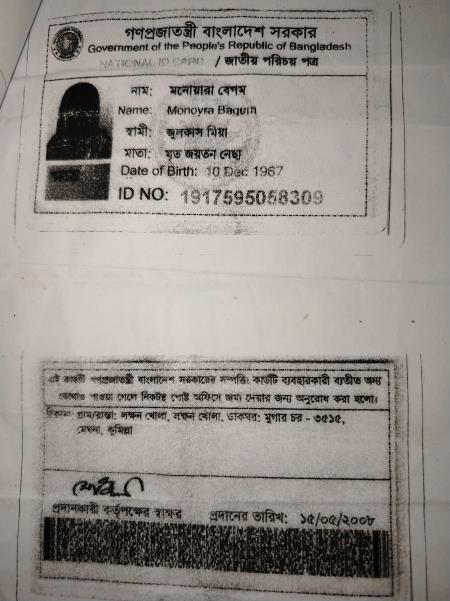 গণপ্রজাতন্ত্রী বাংলাদেশ সরকার
Government of the People's Republic of Bangladesh
NATIONAL ID CARD / জাতীয় পরিচয় পত্র
নাম: মনোয়ারা বেগম
Name: Monoyra Bagum
স্বামী: জুলকাস মিয়া
মাতা: মৃত জয়তন নেছা
Date of Birth: 10 Dec 1967
ID NO: 1917595058309
এই কার্ডটি গণপ্রজাতন্ত্রী বাংলাদেশ সরকারের সম্পত্তি। কার্ডটি ব্যবহারকারী ব্যতীত অন্য
কোথাও পাওয়া গেলে নিকটস্থ পোষ্ট অফিসে জমা দেয়ার জন্য অনুরোধ করা হলো।
ঠিকানা: গ্রাম/রাস্তা: লক্ষন খোলা, লক্ষন খোলা, ডাকঘর: মুগার চর - ৩৫১৫,
মেঘনা, কুমিল্লা
প্রদানকারী কর্তৃপক্ষের স্বাক্ষর প্রদানের তারিখ: ১৫/০৫/২০০৮